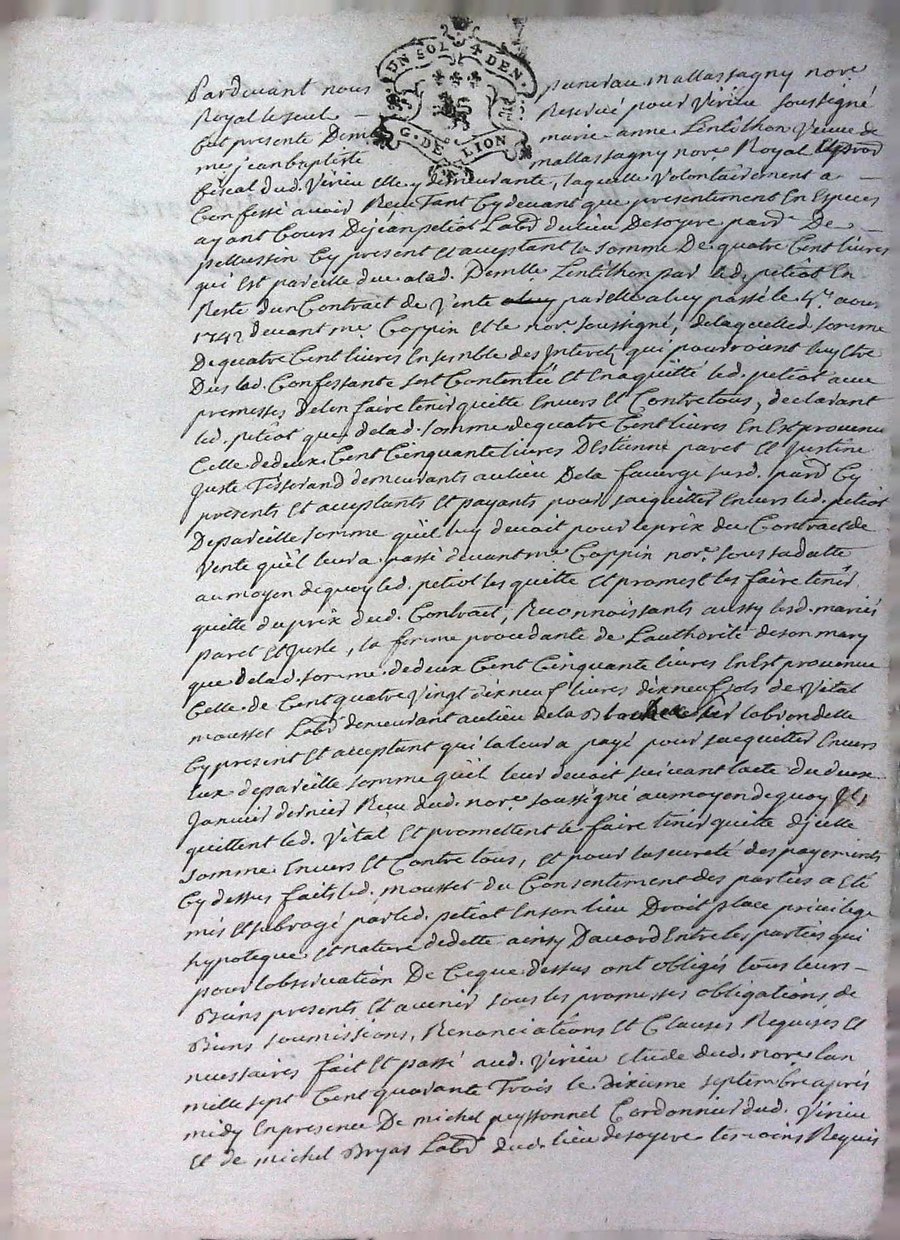 UN SOL 4 DEN.
G. DE LION
Pardevant nous punctau mallassagny nore.
Royal le seul Reservé pour Virieu soussigné
fut presente Demlle marie anne Lentilhon Veuve de
me jean baptiste mallassagny nore. Royal
fiscal dud. Virieu elle y demeurante, laquelle volontairement a
Confessé avoir Receu tant Cy devant que presentement En Especes
ayant Cours De jean petiot Labr. du lieu De soyere par. De
pellussin Cy present et acceptant la somme De quatre Cent livres
qui Est pareille due a lad. Demlle Lentilhon par led. petiot En
Reste dun Contract de Vente par elle a luy passé le 4e. aoust
1742 devant me Coppin et le nore. soussigné, de laquelle d. somme
De quatre Cent livres Ensemble des Interets qui pourroient luy Etre
Dus lad. Confessante s'est Contentée et En a quitté led. petiot avec
promesses de l'en faire tenir quitte Envers et Contre tous, declarant
led. petiot que de lad. somme de quatre Cent livres En Est provenu
Celle de deux Cent Cinquante livres D'Estienne paret et Justine
juste Tisserand demeurants au lieu De la faverge surd. par. Cy
presents et acceptants et payants pour s'acquitter Envers led. petiot
De pareille somme qu'il luy devoit pour le prix du Contract de
Vente qu'il leur a passé devant me Coppin nore. sous sa datte
au moyen de quoy led. petiot les quitte et promest les faire tenir
quitte du prix dud. Contract, Reconnoissants aussy lesd. mariés
paret et Juste, la femme procedante de L'authorité de son mary
que de lad. somme de deux Cent Cinquante livres En Est provenue
Celle de Cent quatre Vingt dix neuf livres dix neuf sols de Vital
mousset Labr. demeurant au lieu de la labrondelle
Cy present et acceptant qui la leur a payé pour sacquitter Envers
Eux de pareille somme qu'il leur devoit suivant lacte du deux
Janvier dernier Receu dud. nore. soussigné au moyen de quoy Ils
quittent led. Vital et promettent le faire tenir quitte d'jcelle
somme Envers et Contre tous, et pour la sureté des payements
Cy dessus faits led. mousset du Consentement des parties a Eté
mis et subrogé par led. petiot En son lieu Droit place privilege
hypoteque et nature de dette ainsy D'acord Entre les parties qui
pour l'observation De Ce que dessus ont obligés tous leurs
Biens presents et avenir sous les promesses obligations de
Biens soumissions, Renonciations et Clauses Requises et
necessaires fait et passé aud. Virieu etude dud. nore lan
mille sept Cent quarante Trois le dixieme septembre apres
midy En presence De michel peyssonnel Cordonnier dud. Virieu
et de michel Bryas Labr. dud. lieu de soyere temoins Requis